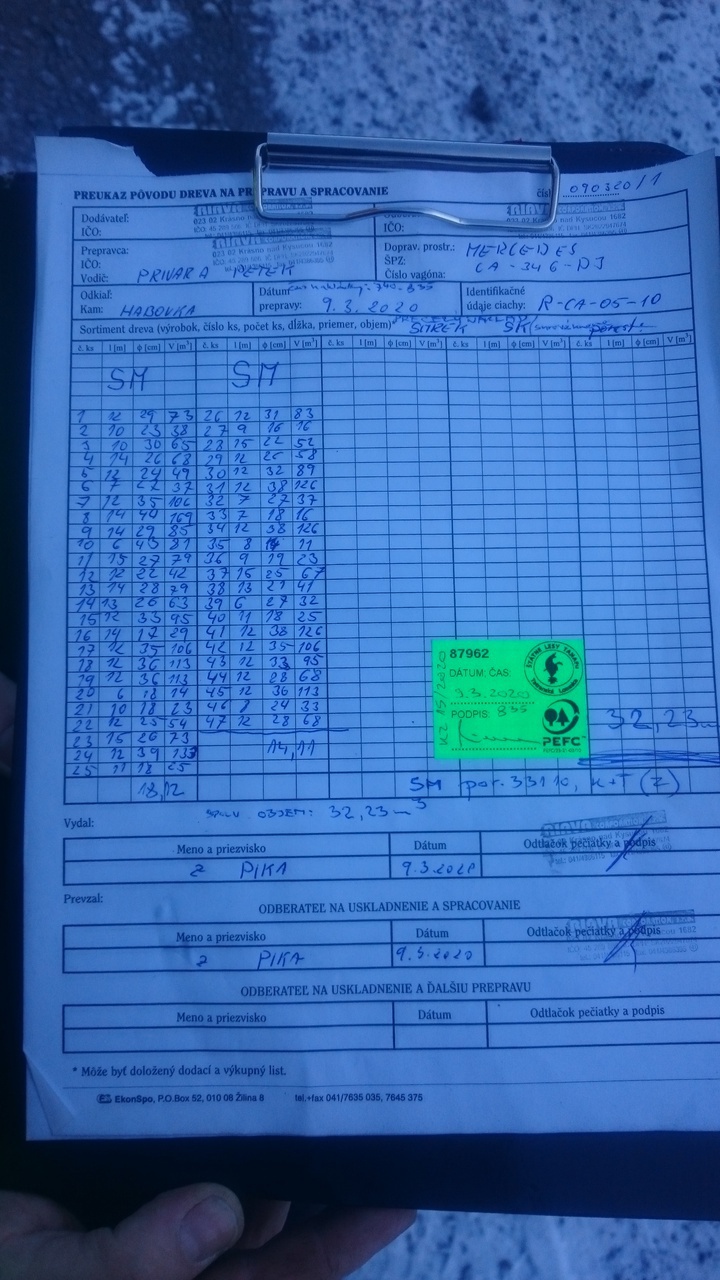 PREUKAZ PÔVODU DREVA NA PREPRAVU A SPRACOVANIE
090320/1
Dodávateľ:
IČO:
023 02 Krásno nad Kysucou 1682
IČO:
Prepravca:
IČO:
Vodič: PRIVARA PETER
023 02 Krásno nad Kysucou 1682
Doprav. prostr.: MERCEDES
ŠPZ: CA-346-DJ
Číslo vagóna:
Odkiaľ:
Kam: HABOVKA
Dátum
prepravy: 9.3.2020
Identifikačné
údaje ciachy: R-CA-05-10
Sortiment dreva (výrobok, číslo ks, počet ks, dĺžka, priemer, objem)* SMREK SK
č. ks l [m] ϕ [cm] V [m³] č. ks l [m] ϕ [cm] V [m³] č. ks l [m] ϕ [cm] V [m³] č. ks l [m] ϕ [cm] V [m³] č. ks l [m] ϕ [cm] V [m³]
SM SM
1 12 29 73 26 12 31 83
2 10 23 38 27 9 16 16
3 10 30 65 28 15 22 52
4 14 26 68 29 12 26 58
5 12 24 49 30 12 32 89
6 7 27 37 31 12 38 126
7 12 35 106 32 7 27 37
8 14 44 169 33 7 18 16
9 14 29 85 34 12 38 126
10 6 43 81 35 8 14 11
11 15 27 79 36 9 19 23
12 12 22 42 37 15 25 67
13 14 28 79 38 13 21 41
14 13 26 63 39 6 27 32
15 12 33 95 40 11 18 25
16 14 17 29 41 12 38 126
17 12 35 106 42 12 35 106
18 12 36 113 43 12 33 95
19 12 36 113 44 12 28 68
20 6 18 14 45 12 36 113
21 10 18 23 46 8 24 33
22 12 25 54 47 12 28 68
23 15 26 73
24 12 39 133
25 11 18 25
14,11
18,12
KZ 15/2020
87962
DÁTUM: ČAS:
9.3.2020
PODPIS: 835
ŠTÁTNE LESY TANAPU
Tatranská Lomnica
PEFC
32,23
SM por. 331 10, K+T (2)
SPOLU OBJEM: 32,23 m³
Vydal:
Meno a priezvisko Dátum Odtlačok pečiatky a podpis
PIKA 9.3.2020
Prevzal:
ODBERATEĽ NA USKLADNENIE A SPRACOVANIE
Meno a priezvisko Dátum Odtlačok pečiatky a podpis
PIKA 9.3.2020
ODBERATEĽ NA USKLADNENIE A ĎALŠIU PREPRAVU
Meno a priezvisko Dátum Odtlačok pečiatky a podpis
* Môže byť doložený dodací a výkupný list.
EkonSpo, P.O.Box 52, 010 08 Žilina 8 tel.+fax 041/7635 035, 7645 375